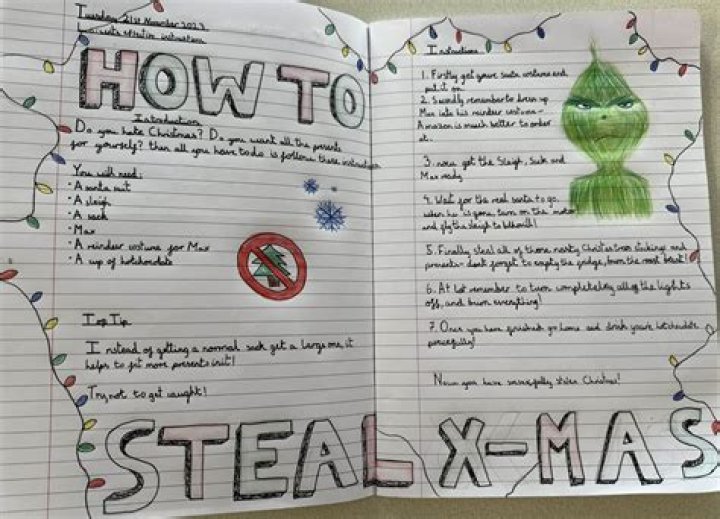 Tuesday 21st November 2023
instructions
HOW TO
Introduction
Do you hate Christmas? Do you want all the presents
for yourself? then all you have to do is follow these instructions
You will need:
· A santa suit
· A sleigh
· A sack
· Max
· A reindeer costume for Max
· A cup of hotchocolate
Top Tip
Instead of getting a normal sack get a large one, it
helps to fit more presents in it!
Try not to get caught!
STEAL X-MAS
Instructions
1. Firstly get your santa costume and
put it on.
2. Secondly remember to dress up
Max into his reindeer costume-
Amazon is much better to order
at.
3. now get the Sleigh, Sack and
Max ready
4. Wait for the real santa to go.
when he is gone, turn on the motor
and fly the sleigh to
5. Finally steal all of those nasty Christmas stokings and
presents- dont forget to empty the fridge, from the roast beast!
6. At last remember to turn completeley all of the lights
off, and burn everything!
7. Once you have finished go home and drink your hotchocolate
peacefully!
Now you have sucessfully stolen Christmas!